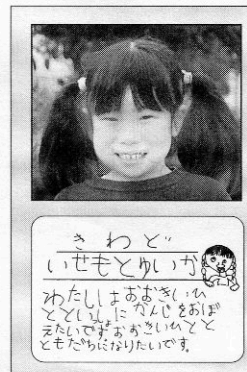 きわど
いせもとゆいか
わたしはおおきいひ
とといっしょにかんじをおぼ
えたいです。おおきいひとと
ともだちになりたいです。